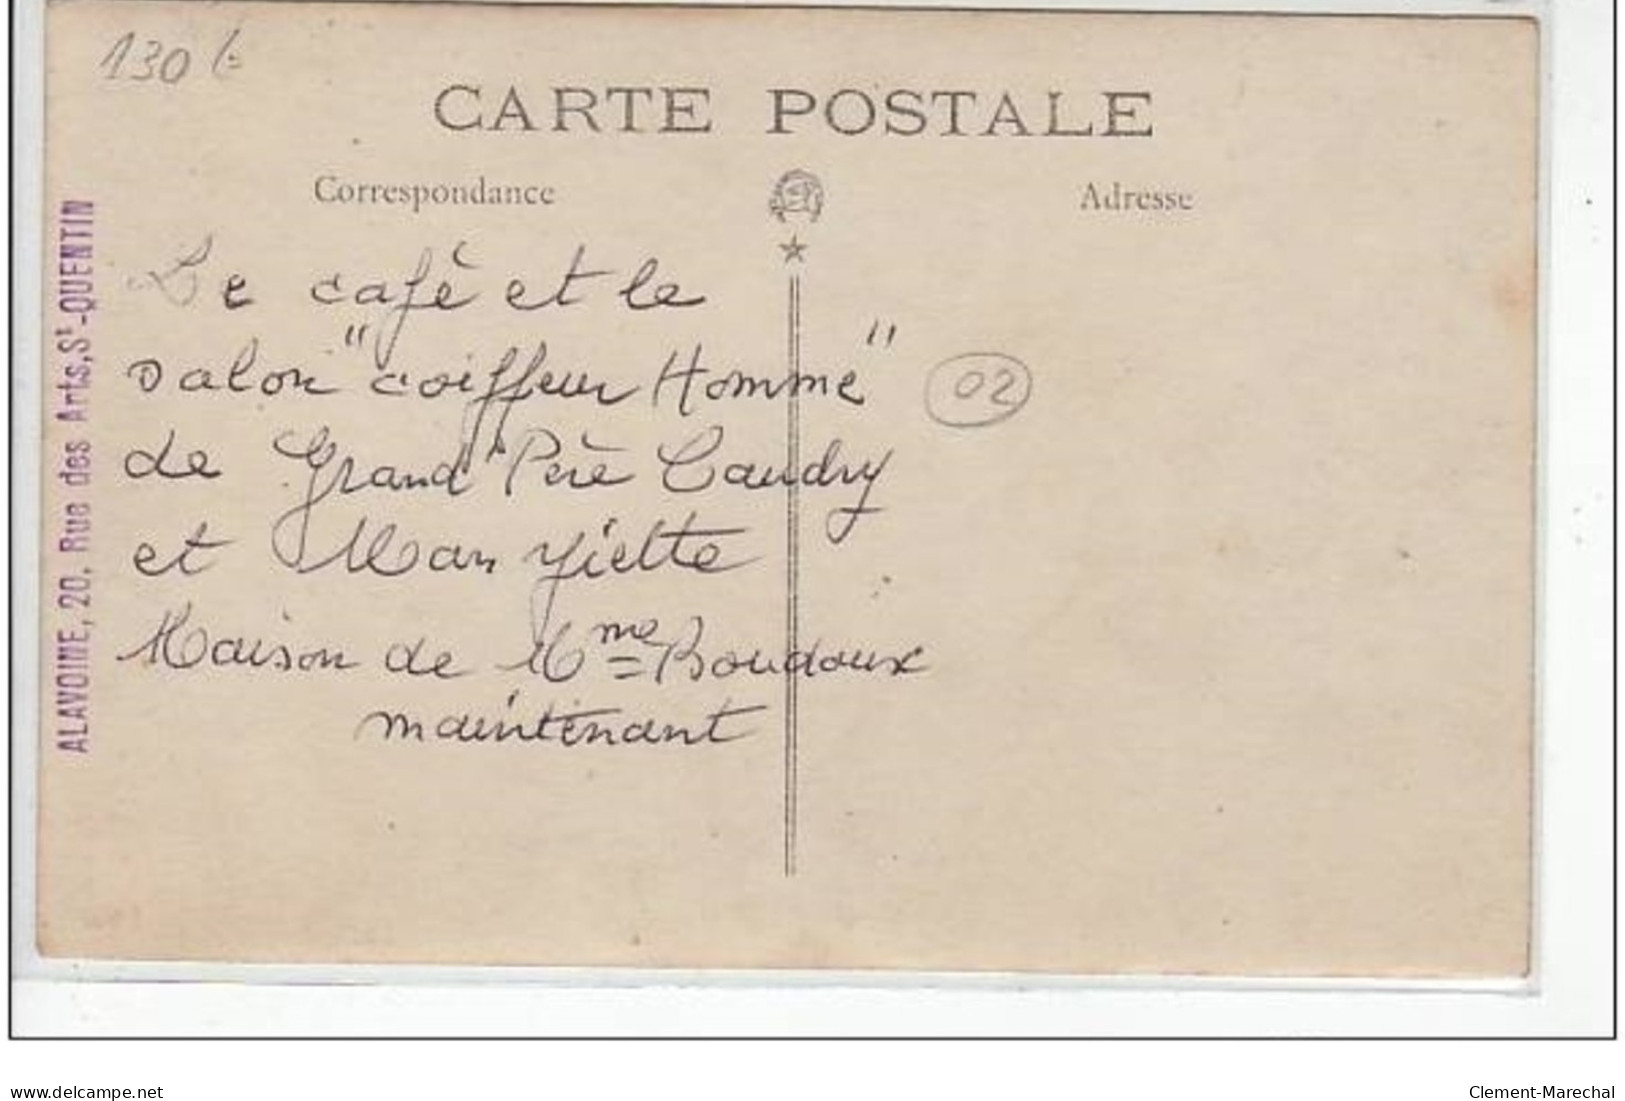 130 €
CARTE POSTALE
Correspondance
Adresse
ALAVOINE, 20, Rue des Arts, St-QUENTIN
Le café et le
salon "coiffeur Homme"
02
de Grand Père Caudry
et Man
Maison de Mme Boudoux
maintenant
www.delcampe.net
Clement-Marechal